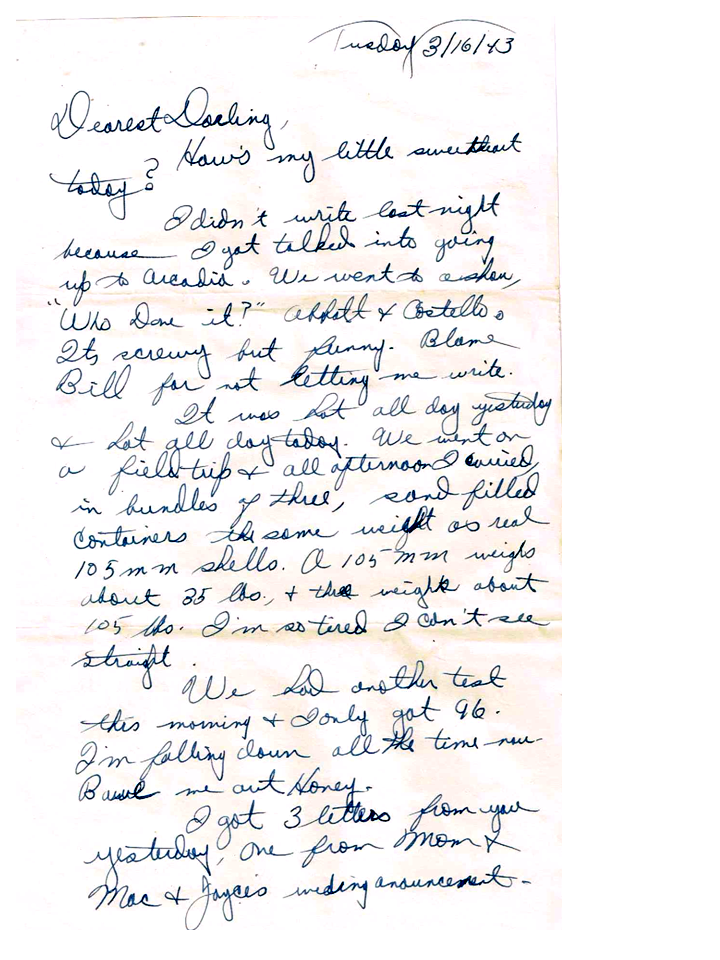 Tusday 3/16/43
Dearest Darling,
How's my little sweetheart
today?
I didn't write last night
because I got talked into going
up to Arcadia. We went to a show,
"Who Done it?" Abbott & Costello.
Its screwy but funny. Blame
Bill for not letting me write.
It was hot all day yesterday
& hot all day today. We went on
a field trip & all afternoon I carried,
in bundles of three, sand filled
containers the same weight as real
105 mm shells. A 105 mm weighs
about 35 lbs., & three weighs about
105 lbs. I'm so tired I can't see
straight.
We had another test
this morning & I only got 96.
I'm falling down all the time now.
Bawl me out Honey.
I got 3 letters from you
yesterday, one from Mom &
Mac & Joyce's wedding anouncement.